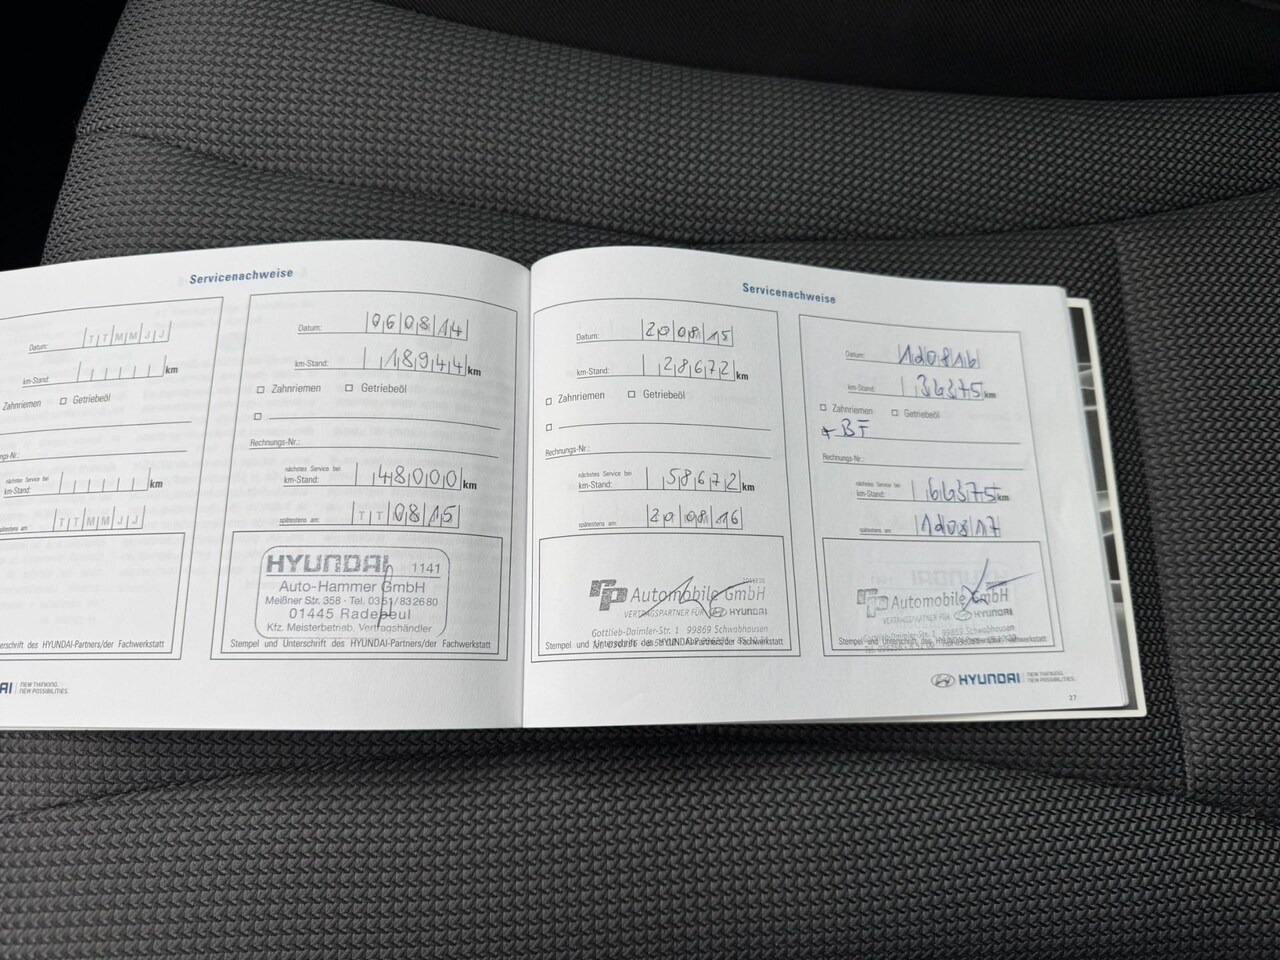 Servicenachweise
Datum: T T M M J J
km-Stand: km
Zahnriemen Getriebeöl
km-Stand: km
spätestens am: T T M M J J
HYUNDAI-Partners/der Fachwerkstatt
AI NEW THINKING. NEW POSSIBILITIES.
Datum: 060814
km-Stand: 18944 km
Zahnriemen Getriebeöl
Rechnungs-Nr.:
nächstes Service bei
km-Stand: 48000 km
spätestens am: T T 0815
HYUNDAI 1141
Auto-Hammer GmbH
Meißner Str. 358 - Tel. 0351/832680
01445 Radebeul
Kfz. Meisterbetrieb, Vertragshändler
Stempel und Unterschrift des HYUNDAI-Partners/der Fachwerkstatt
Servicenachweise
Datum: 200815
km-Stand: 28672 km
Zahnriemen Getriebeöl
Rechnungs-Nr.:
nächstes Service bei
km-Stand: 58672 km
spätestens am: 200816
rp Automobile GmbH
VERTRAGSPARTNER FÜR HYUNDAI
Gottlieb-Daimler-Str. 1 99869 Schwabhausen
Stempel und Unterschrift des HYUNDAI-Partners/der Fachwerkstatt
Datum: 100816
km-Stand: 36375 km
Zahnriemen Getriebeöl
+BF
Rechnungs-Nr.:
nächstes Service bei
km-Stand: 66375 km
spätestens am: 100817
rp Automobile GmbH
VERTRAGSPARTNER FÜR HYUNDAI
Gottlieb-Daimler-Str. 1 99869 Schwabhausen
Stempel und Unterschrift des HYUNDAI-Partners/der Fachwerkstatt
HYUNDAI NEW THINKING. NEW POSSIBILITIES.
37